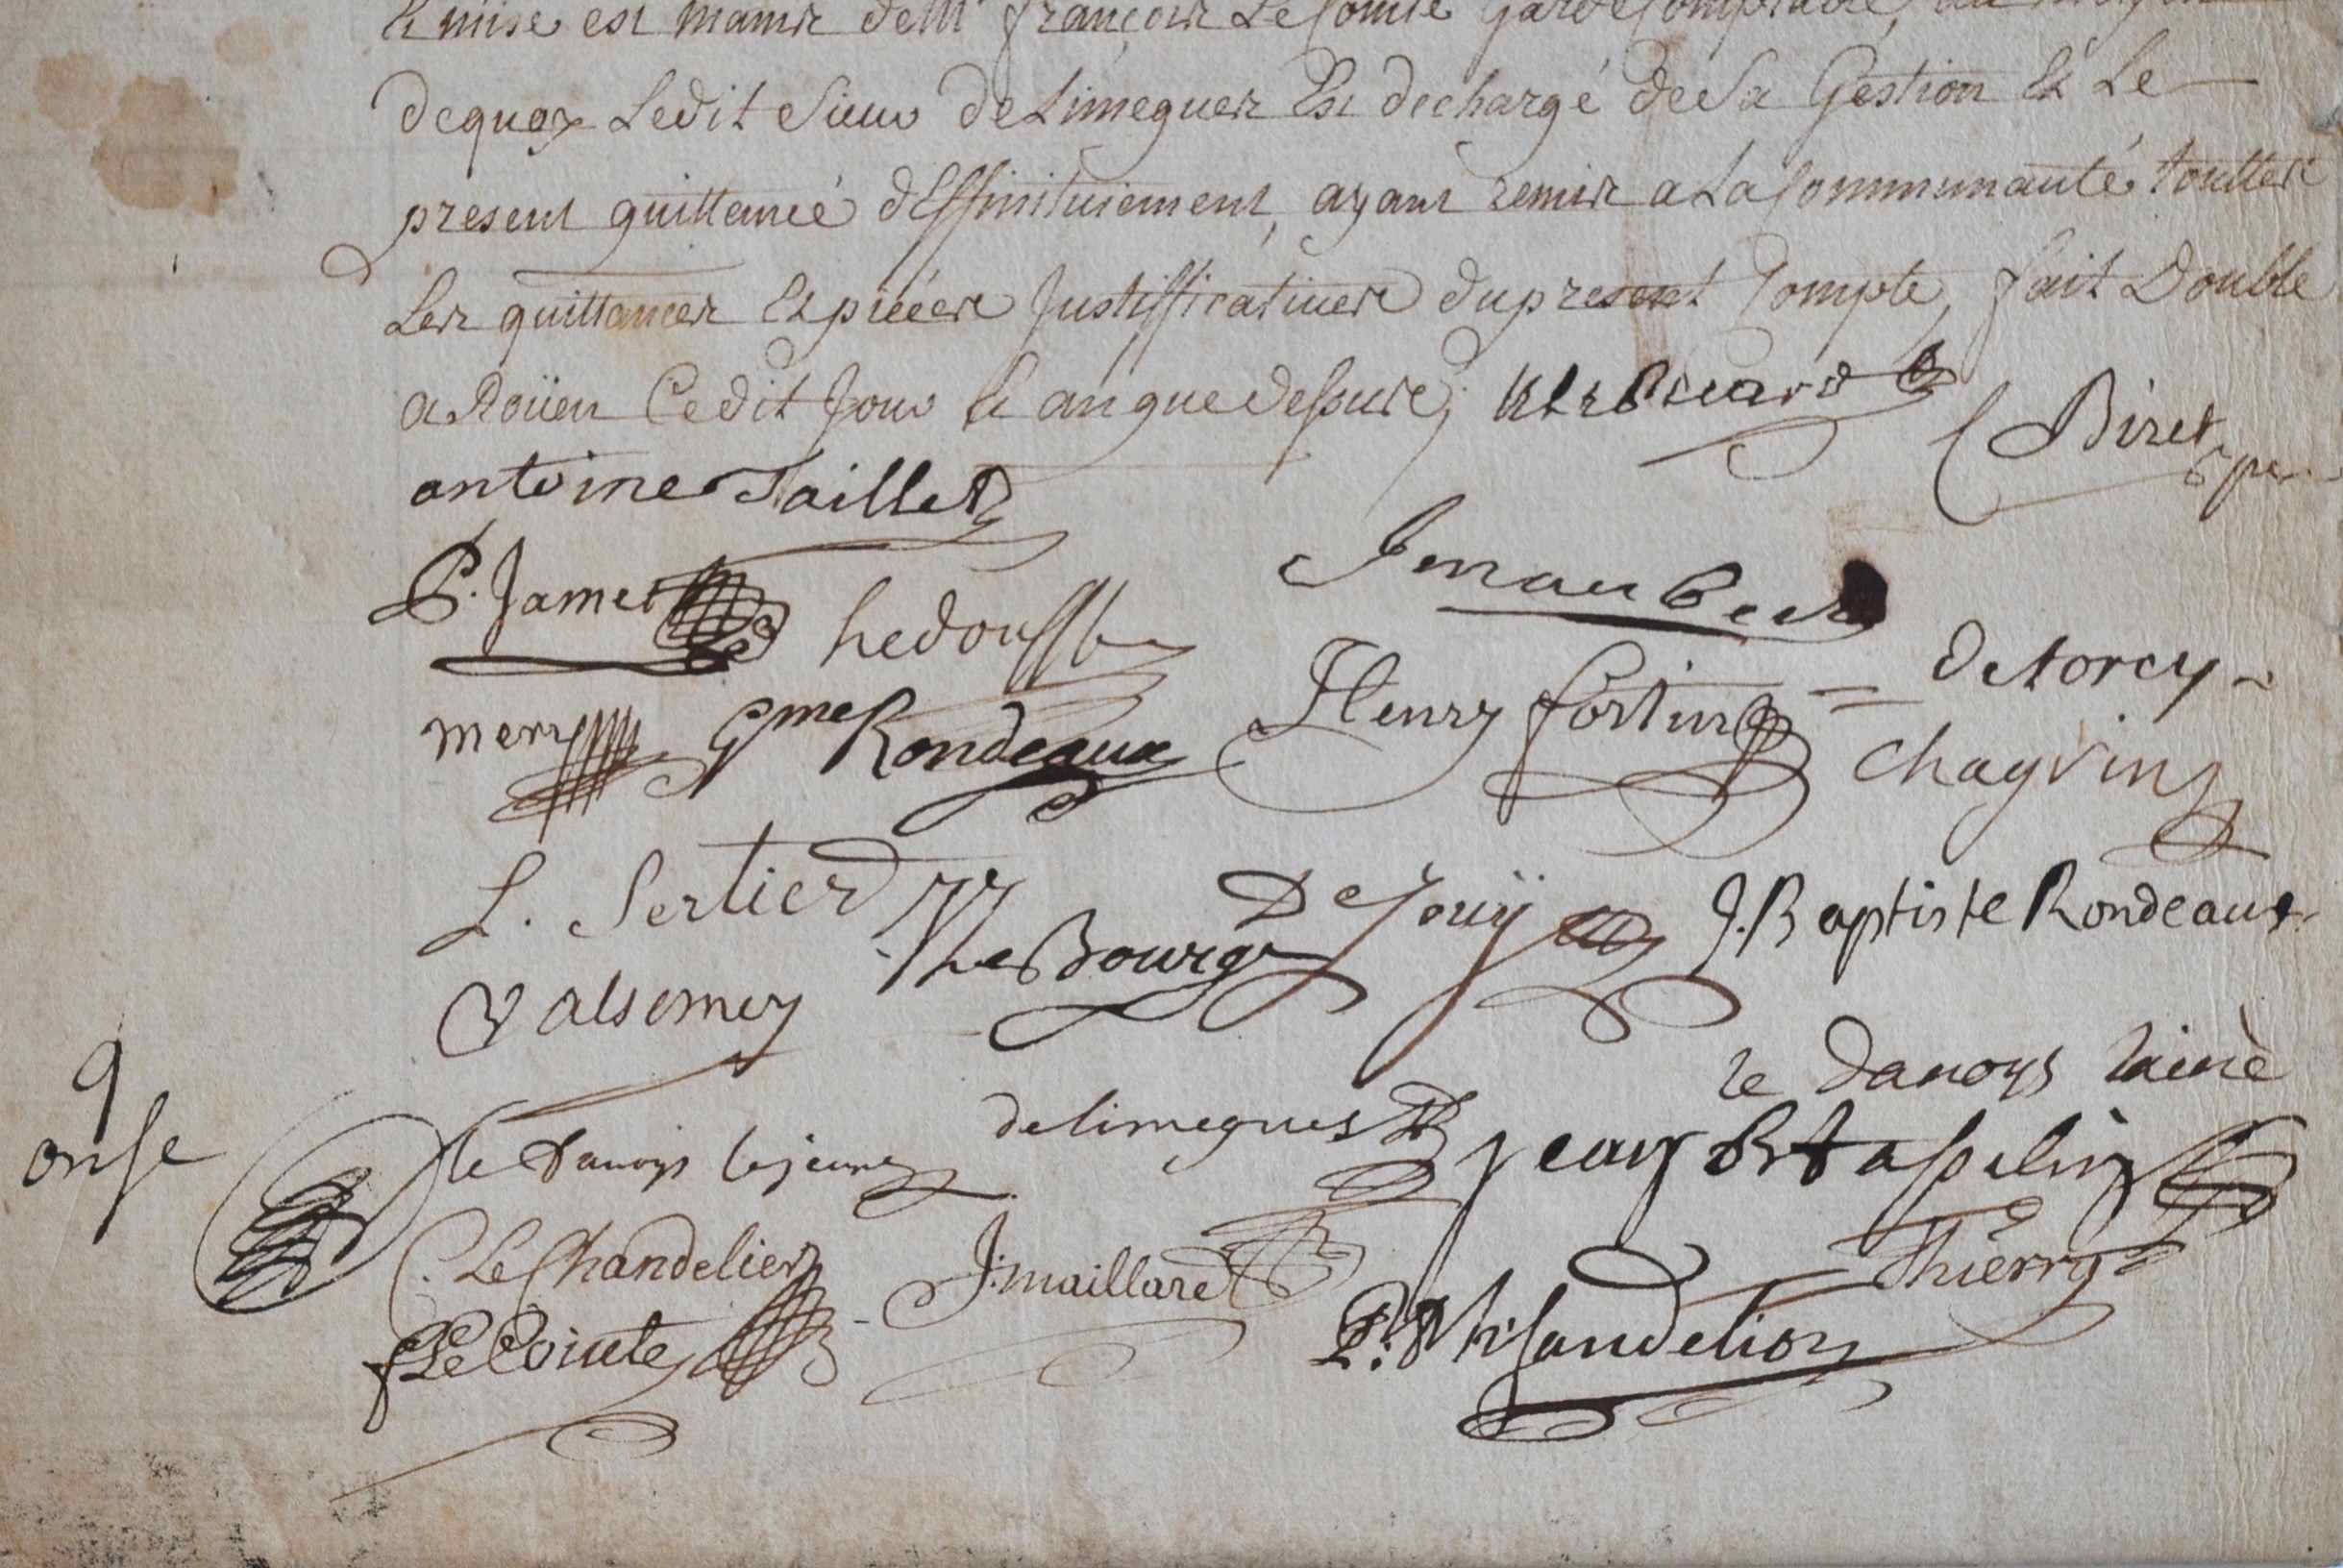 Remise es mains de Mr françois Le Comte garde Comptable, au moyen
dequoy Ledit Sieur deLimeguer Est dechargé deSa Gestion Et Le
present quittancé deffinitivement, ayant remis a LaCommunauté touttes
Les quittances Et piéces Justifficatives dupresent Compte, fait Double
a Roüen Cedit Jour & an que dessus;
Biret
antoine Taillet
P. Jamet
hedou
de torcy
mery
Gme Rondeaux
Henry fortin
chayvin
L. Sertier
De Joüÿ
J. Baptiste Rondeaux
Valsemey
leBourg
le danoys lainé
9
onse
le danoys lejeune
delimegues
jean Bt aspelin
C. LeChandelier
J. maillard
Thierry
f Le Cointe